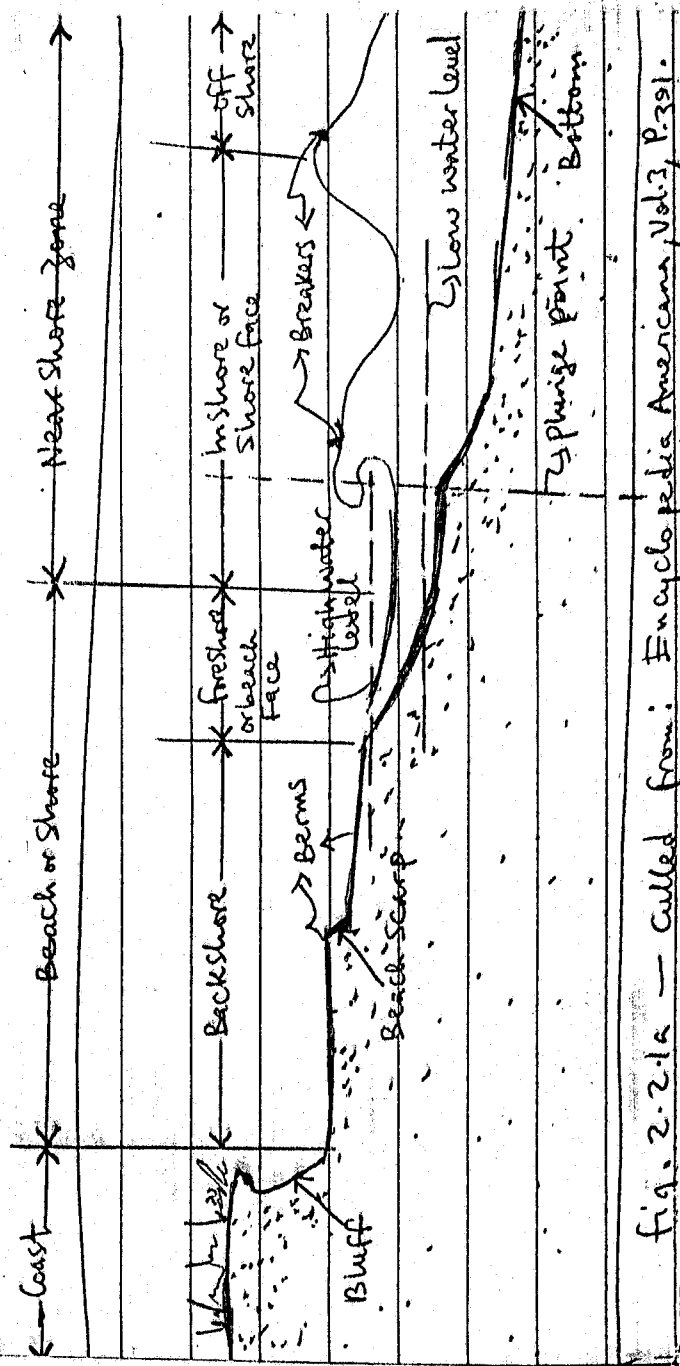 Coast
Beach or Shore
Near Shore Zone
Backshore
foreshore
or beach
face
Inshore or
Shore face
off
shore
Berms
High water
level
Breakers
Low water level
Bluff
Beach Scarp
Plunge point
Bottom
fig. 2.2.1a — Culled from: Encyclopedia Americana, Vol.3, P.391.